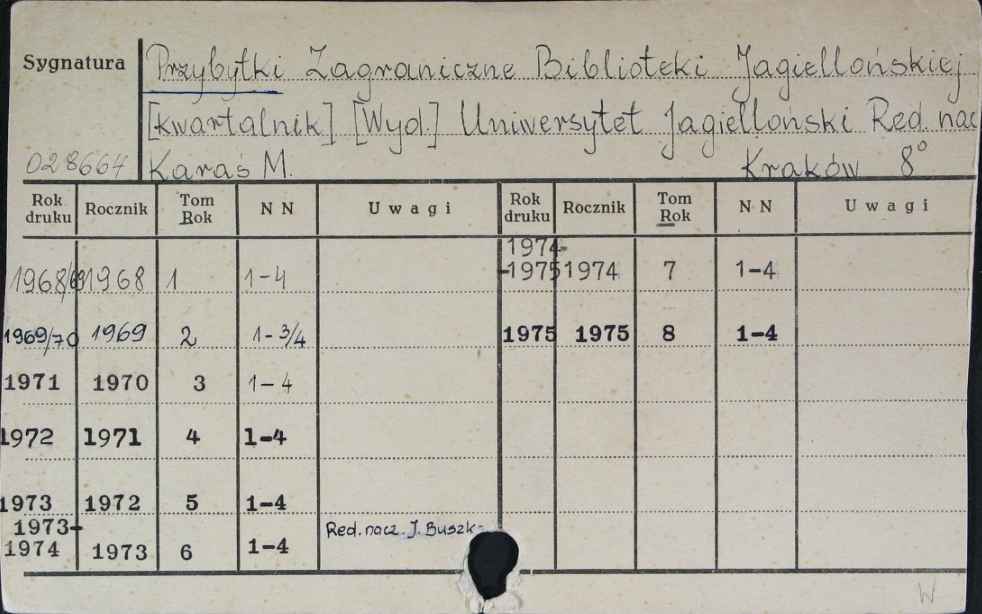 Sygnatura Przybytki Zagraniczne Biblioteki Jagiellońskiej
[kwartalnik] [Wyd.] Uniwersytet Jagielloński Red. nac
028664 Karaś M. Kraków 8°
Rok druku Rocznik Tom Rok N N Uwagi Rok druku Rocznik Tom Rok N N Uwagi
1968/69 1968 1 1-4 1974-1975 1974 7 1-4
1969/70 1969 2 1-3/4 1975 1975 8 1-4
1971 1970 3 1-4
1972 1971 4 1-4
1973 1972 5 1-4
1973-1974 1973 6 1-4 Red. nacz. J. Buszk-
W